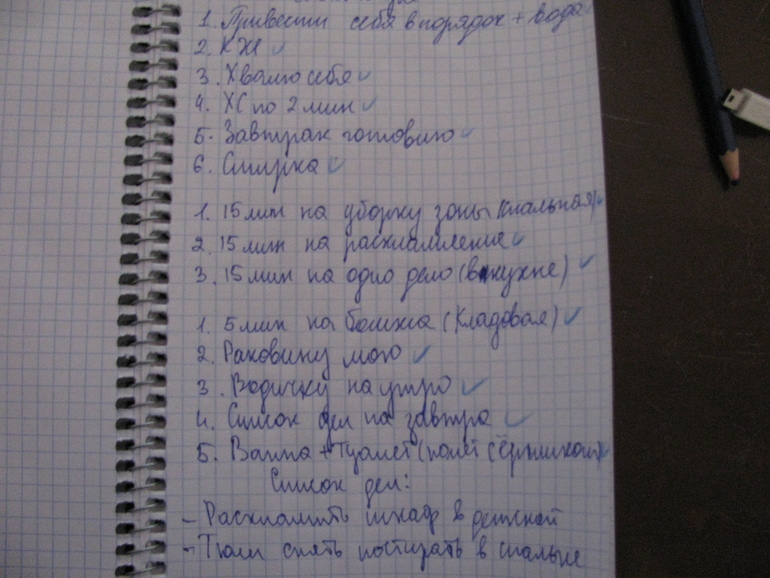 1. Привести себя в порядок + вода
2. КЖ
3. Хвалю себя
4. ХС по 2 мин
5. Завтрак готовлю
6. Стирка
1. 15 мин на уборку зоны (спальная)
2. 15 мин на расхламление
3. 15 мин на одно дело (в кухне)
1. 5 мин на бомжа (Кладовая)
2. Раковину мою
3. Водичку на утро
4. Список дел на завтра
5. Ванна + Туалет (полет с ёршиком)
Список дел:
- Расхламить шкаф в детской
- Тюли снять постирать в спальне